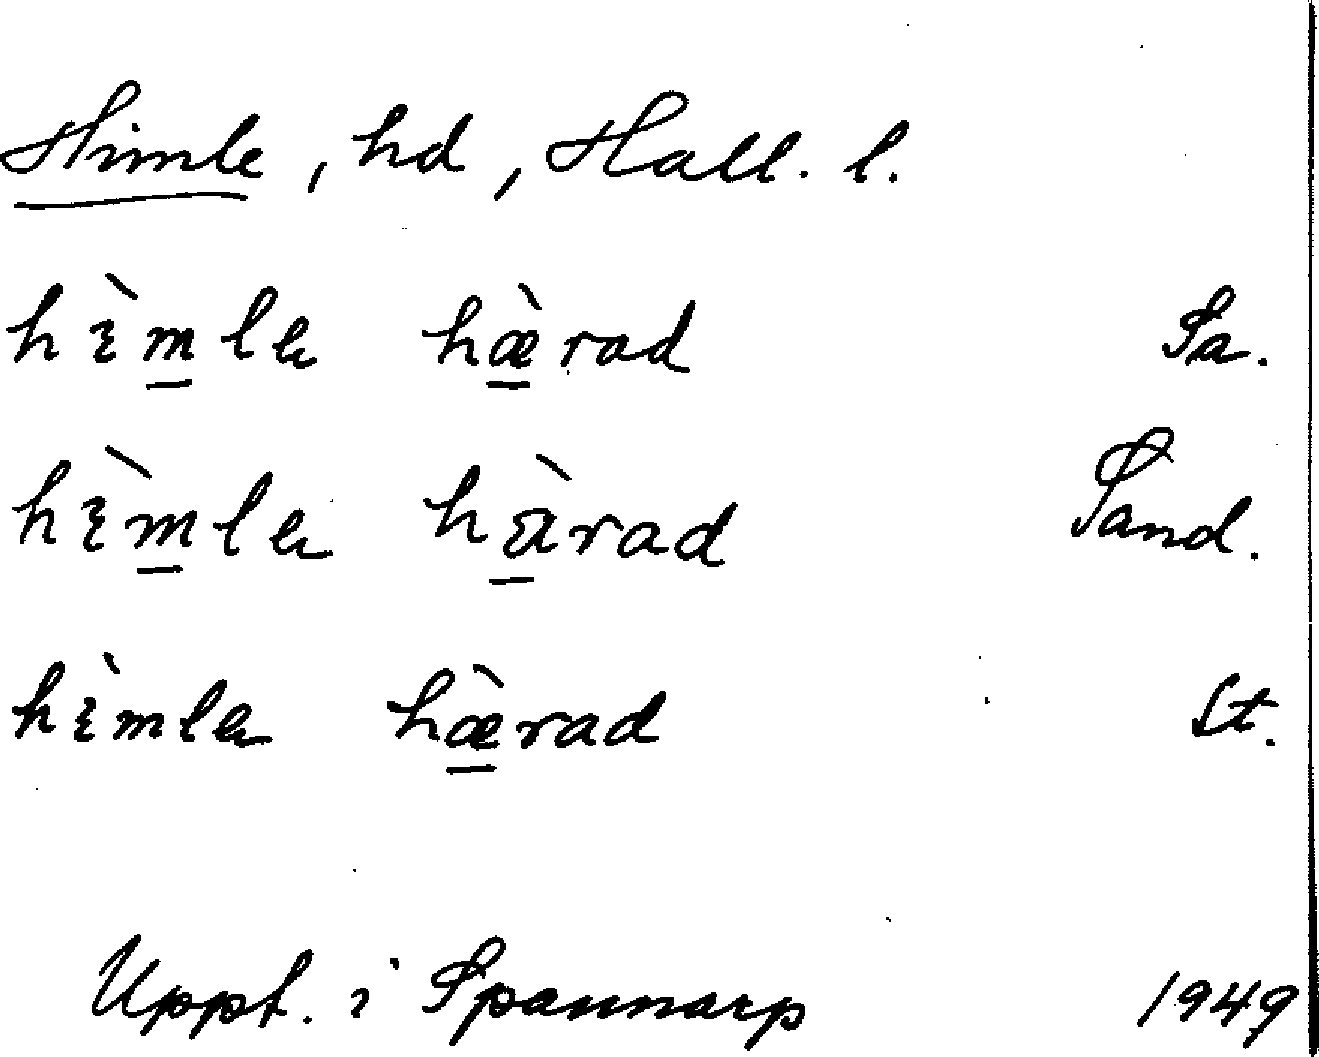 Himle, hd, Hall. l.
hì̵m̲lə hæ̲̀rad Sa.
hì̵m̲lə hà̲rad Sand.
hì̵mlə hæ̲̀rad St.
Uppt. i Spannarp 1949